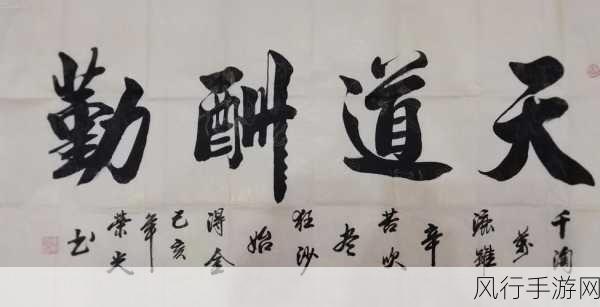 天道酬勤
千淘
萬
漉雖
辛
苦吹
尽
狂沙
始
得金
己亥
年
荣光
书
风行手游网